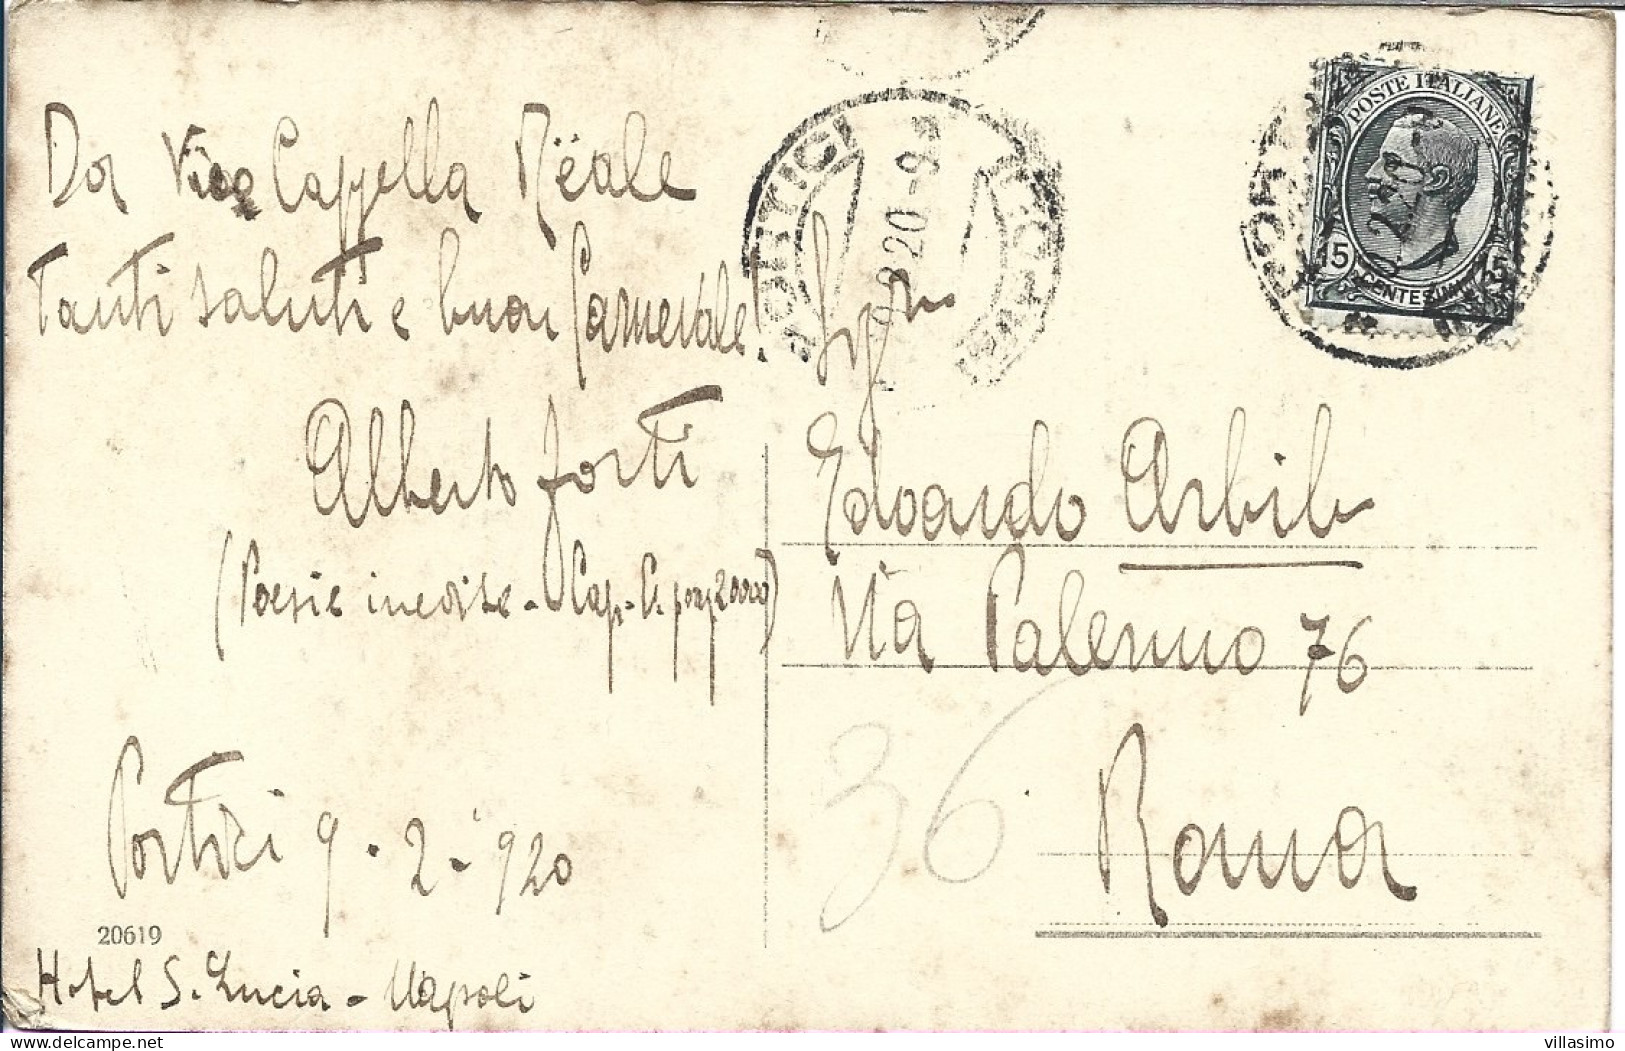 Da Vico Cappella Reale
Tanti saluti e buon Carnevale!
Alberto Forti
(Poesie inedite - Cap.
Portici 9-2-920
20619
Hotel S. Lucia - Napoli
PORTICI
9.2.20 -9
POSTE ITALIANE
15 15
CENTESIMI
PORTICI
2.20
Edoardo Arbib
Via Palermo 76
Roma
36
delcampe.net
villasimo